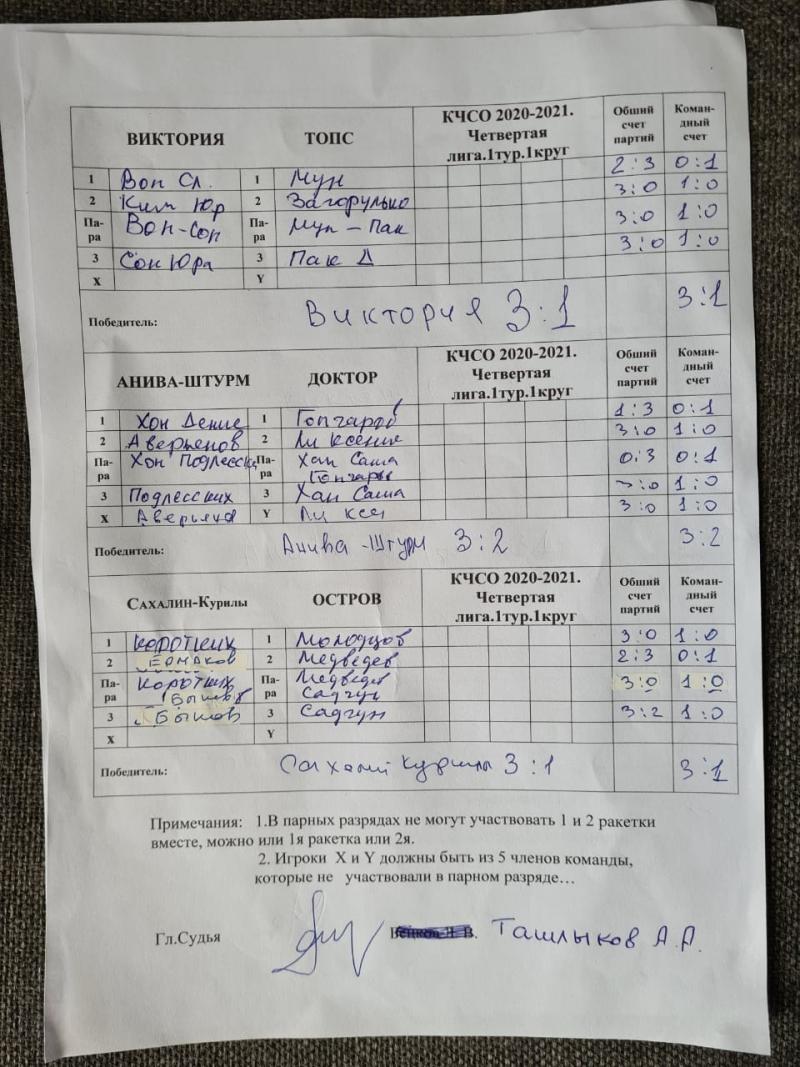 ВИКТОРИЯ ТОПС КЧСО 2020-2021. Четвертая лига.1тур.1круг Обший счет партий Коман-дный счет
1 Вон Сл. 1 Мун 2:3 0:1
2 Ким Юр 2 Загорулько 3:0 1:0
Па-ра Вон-Сон Па-ра Мун - Пак 3:0 1:0
3 Сон Юра 3 Пак Д 3:0 1:0
X Y
Победитель: Виктория 3:1 3:1
АНИВА-ШТУРМ ДОКТОР КЧСО 2020-2021. Четвертая лига.1тур.1круг Обший счет партий Коман-дный счет
1 Хон Денис 1 Гончаров 1:3 0:1
2 Аверьенов 2 Ли Ксение 3:0 1:0
Па-ра Хон Подлесских Па-ра Хан Саша Гончаров 0:3 0:1
3 Подлесских 3 Хан Саша 3:0 1:0
X Аверьяно Y Ли Ксен 3:0 1:0
Победитель: Анива-Штурм 3:2 3:2
САХАЛИН-Курилы ОСТРОВ КЧСО 2020-2021. Четвертая лига.1тур.1круг Обший счет партий Коман-дный счет
1 Коротких 1 Молодцов 3:0 1:0
2 Ермаков 2 Медведев 2:3 0:1
Па-ра Коротких Бышов Па-ра Медведев Садчун 3:0 1:0
3 Бышов 3 Садчун 3:2 1:0
X Y
Победитель: Сахалин Курилы 3:1 3:1
Примечания: 1.В парных разрядах не могут участвовать 1 и 2 ракетки
вместе, можно или 1я ракетка или 2я.
2. Игроки X и Y должны быть из 5 членов команды,
которые не участвовали в парном разряде…
Гл.Судья Ташлыков А.А.